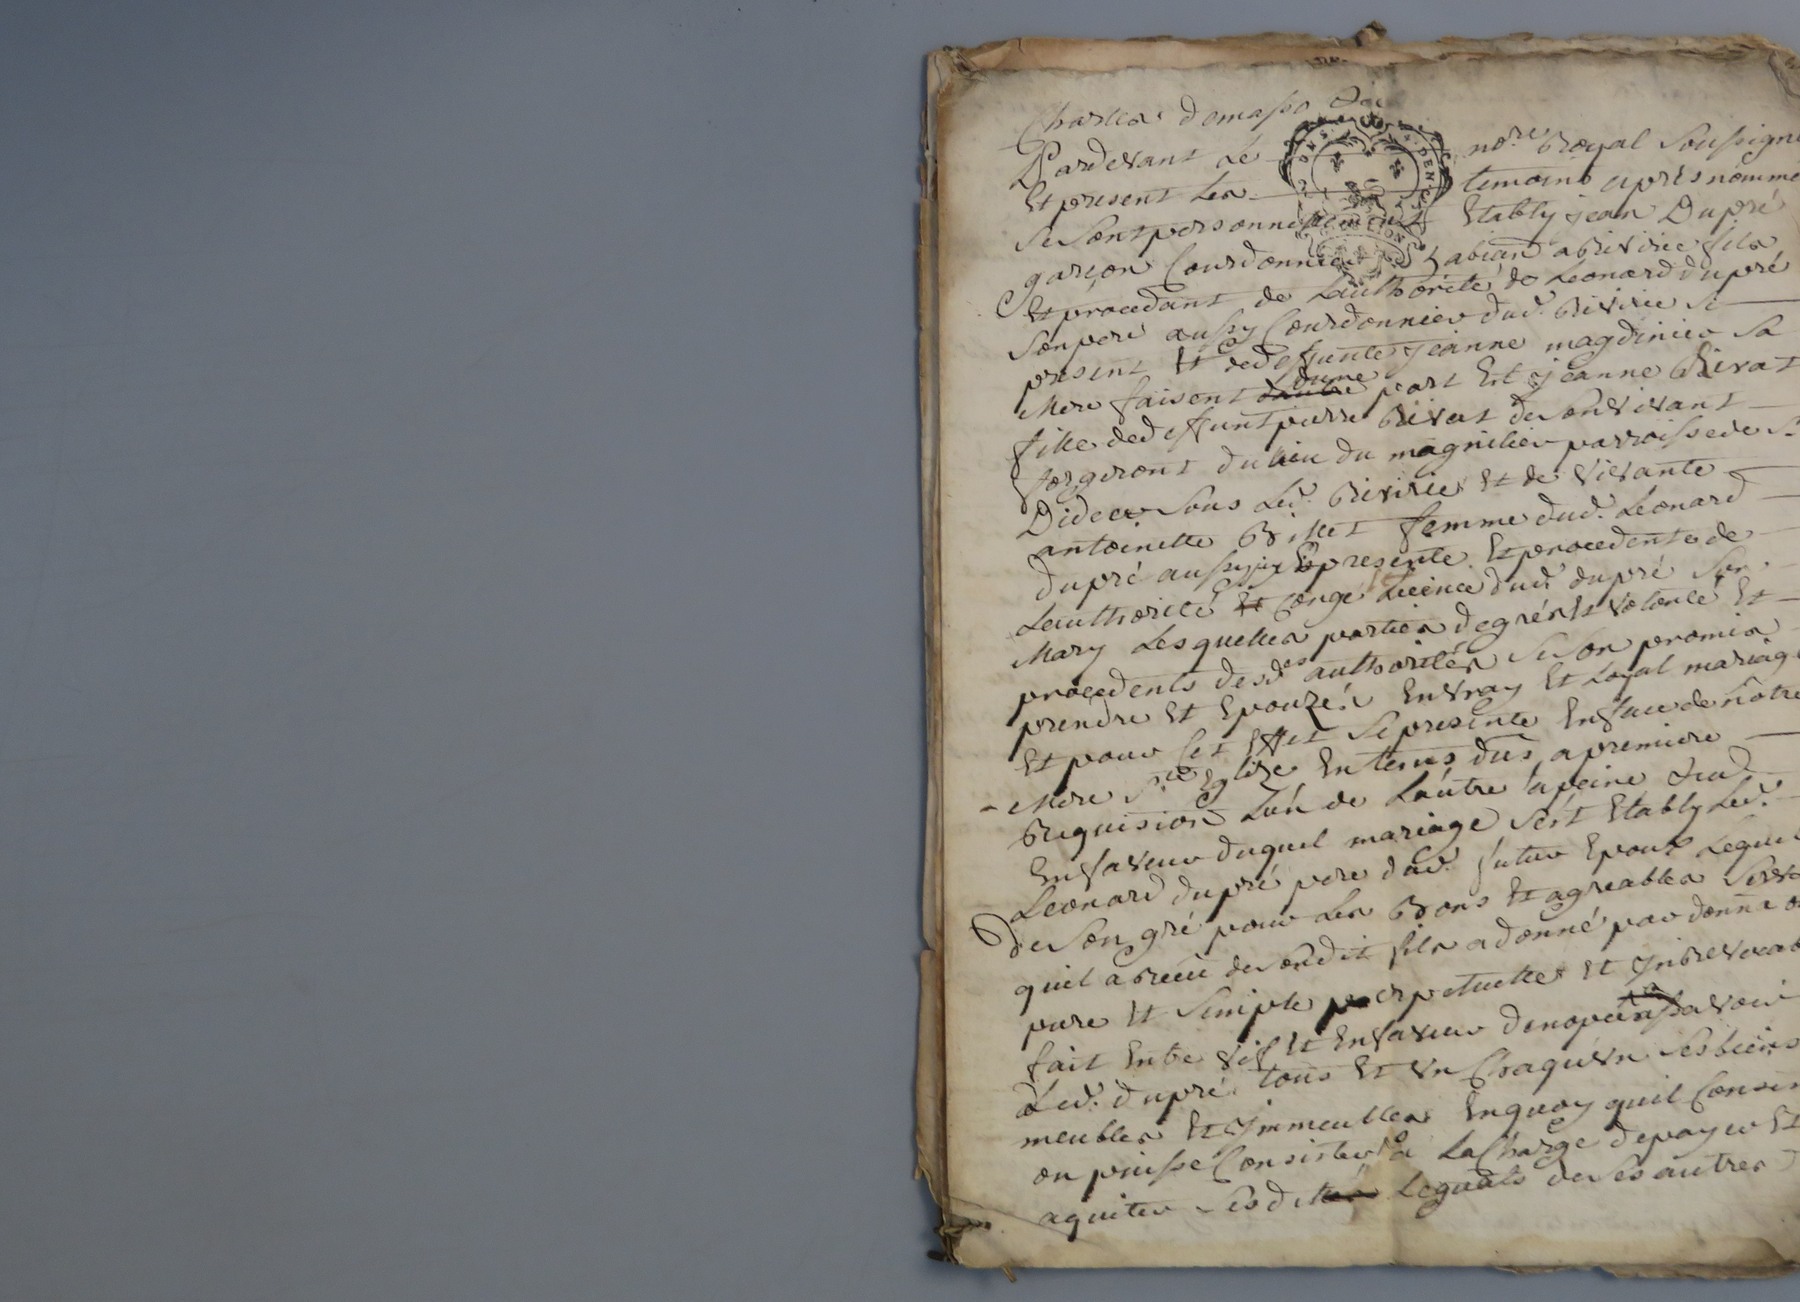 Pardevant Le no.re Royal soussigné
Et present Les temoins apres nommé
se sont personnellement Etably jean Dupré
garçon Courdonnier fils
Et procedant de Lauthorité de Leonard dupré
son pere aussy Courdonnier dud.
present Et de deffunte jeanne sa
Mere faisent dune part Et jeanne Rivat
fille de deffunt pierre Rivat de son vivant
forgeront du lieu du parroisse de St
Didier sous Led. Et de vivante
antoinette femme dud. Leonard
dupré aussy jcy presente Et procedente de
Lauthorité Et congé Licence dud. dupré son
Mary Lesquelles parties de gré Et volonté Et
procedents desd. authorités se son promis
prendre Et Epouzér En vray Et Loyal mariage
Et pour cet Effet se presenté En face de notre
Mere Ste Eglize En tems dus a premiere
Requision Lún de Láutre a peine &ca
En faveur duquel mariage sést Etably Led.
Leonard dupré pere dud. futur Epoux Lequel
de son gré pour Les Bons Et agreables
quil a Receu de sondit fils a donné par
pure Et simple perpetuelle Et jrrevocab
fait Entre vif Et En faveur de
Led. dupré tous Et Un Chaquun ses biens
meubles Et jmmeubles En quoy quil
ou puisse Consister a La Charge de payer Et
aquiter Legaats de ses autres